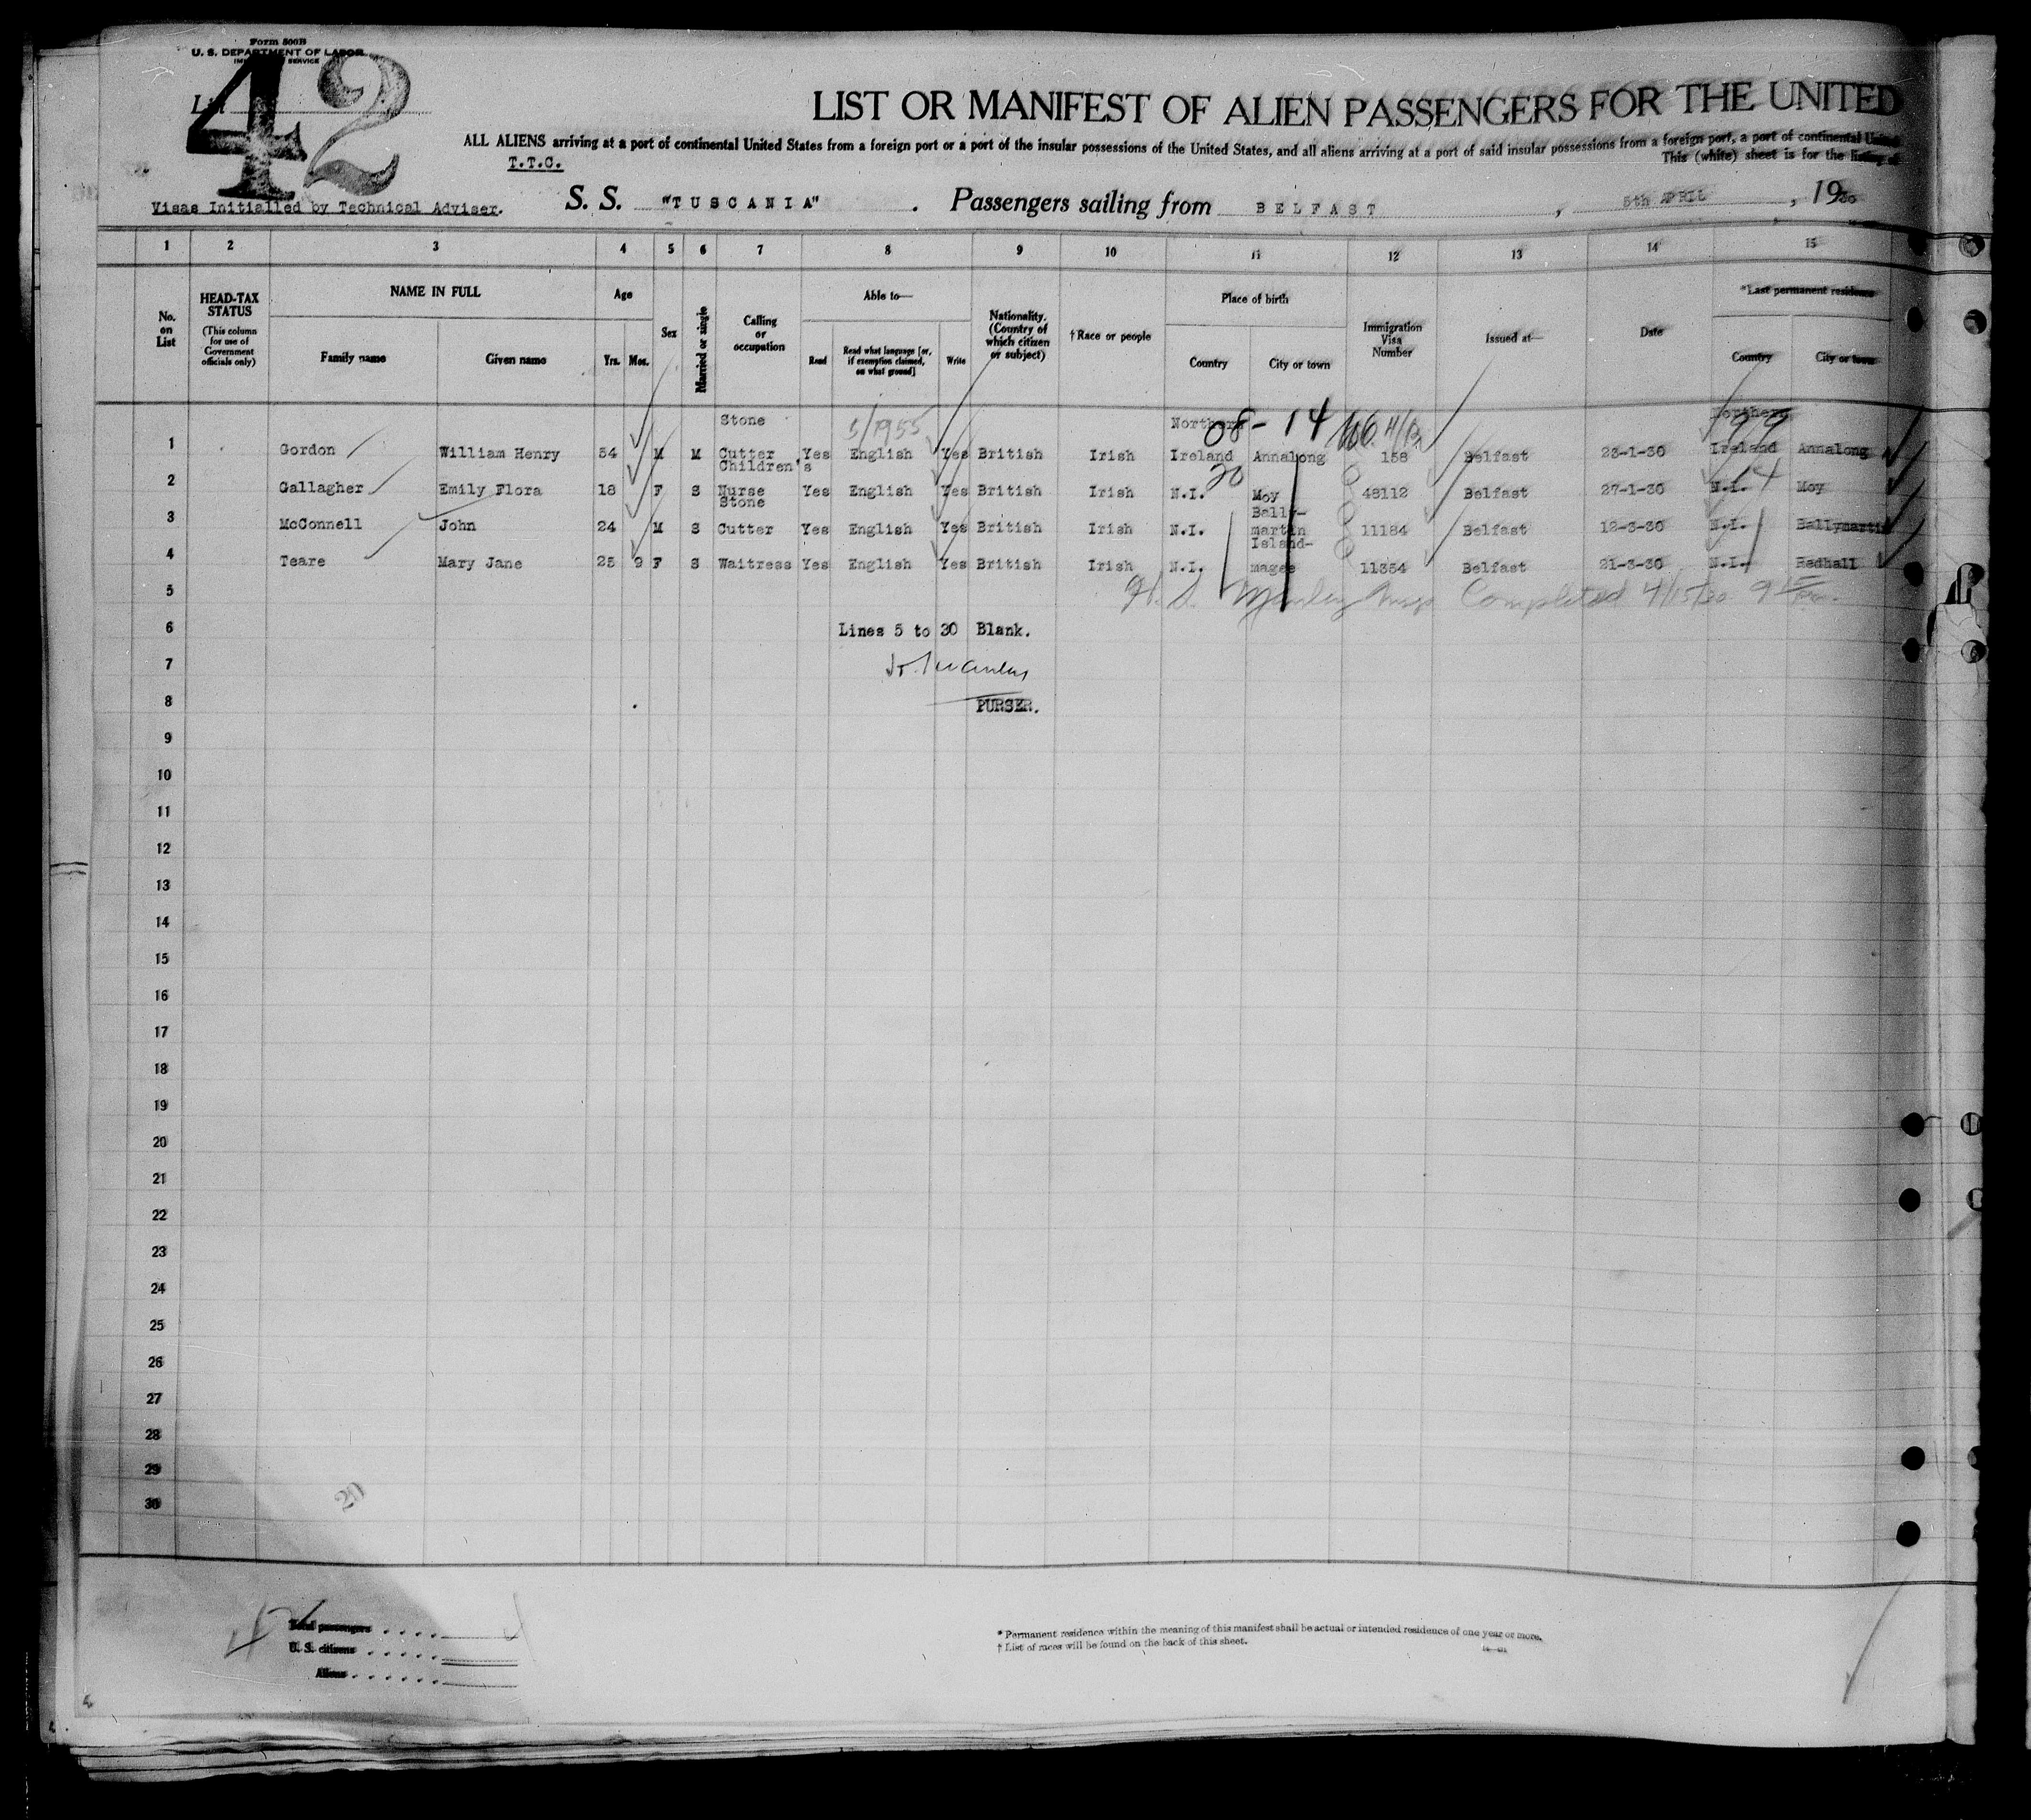 Form 500B
U. S. DEPARTMENT OF LABOR
SERVICE
42
LIST OR MANIFEST OF ALIEN PASSENGERS FOR THE UNITED
ALL ALIENS arriving at a port of continental United States from a foreign port or a port of the insular possessions of the United States, and all aliens arriving at a port of said insular possessions from a foreign port, a port of continental United
T.T.C.
This (white) sheet is for the listing of
Visas Initialled by Technical Adviser.
S. S. "TUSCANIA". Passengers sailing from BELFAST, 5th APRIL, 1930
1 2 3 4 5 6 7 8 9 10 11 12 13 14 15
No. on List
HEAD-TAX STATUS (This column for use of Government officials only)
NAME IN FULL
Family name
Given name
Age
Yrs. Mos.
Sex
Married or single
Calling or occupation
Able to—
Read
Read what language [or, if exemption claimed, on what ground]
Write
Nationality. (Country of which citizen or subject)
†Race or people
Place of birth
Country
City or town
Immigration Visa Number
Issued at—
Date
*Last permanent residence
Country
City or town
08-14
99
1 Gordon William Henry 34 M M Stone Cutter Yes English Yes British Irish Northern Ireland Annalong 158 Belfast 23-1-30 Northern Ireland Annalong
20
2 Gallagher Emily Flora 18 F S Children's Nurse Yes English Yes British Irish N.I. Moy 48112 Belfast 27-1-30 N.I. Moy
3 McConnell John 24 M S Stone Cutter Yes English Yes British Irish N.I. Ballymartin 11184 Belfast 12-3-30 N.I. Ballymartin
4 Teare Mary Jane 25 9 F S Waitress Yes English Yes British Irish N.I. Island-magee 11354 Belfast 21-3-30 N.I. Redhall
5 Completed 4/15/30
6 Lines 5 to 30 Blank.
7
8 PURSER.
9
10
11
12
13
14
15
16
17
18
19
20
21
22
23
24
25
26
27
28
29
30
20
Total passengers . . . .
U. S. citizens . . . . .
Aliens . . . . . .
* Permanent residence within the meaning of this manifest shall be actual or intended residence of one year or more.
† List of races will be found on the back of this sheet.